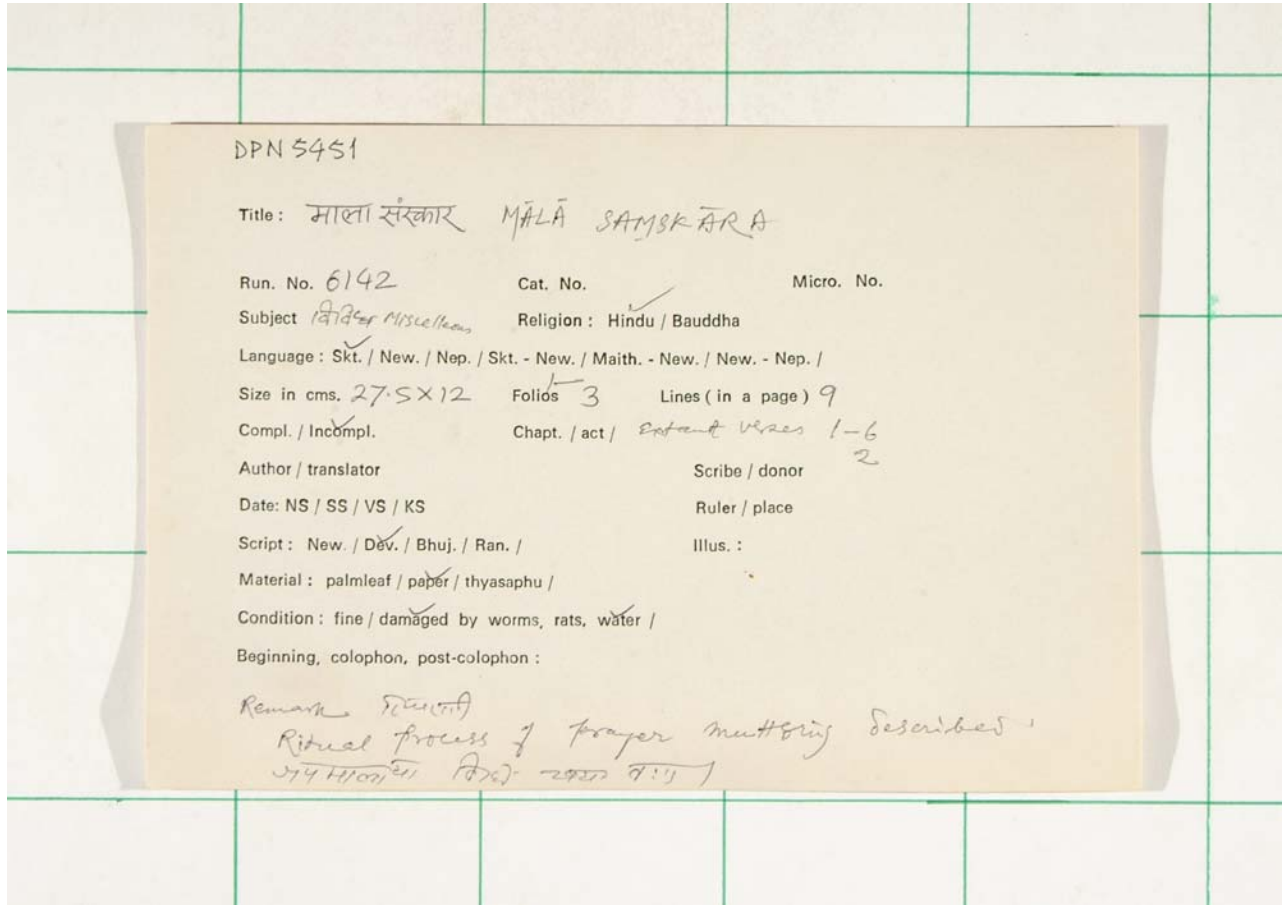 DPN 5451
Title : माला संस्कार MĀLĀ SAMSKĀRA
Run. No. 6142 Cat. No. Micro. No.
Subject Miscellaneous Religion : Hindu / Bauddha
Language : Skt. / New. / Nep. / Skt. - New. / Maith. - New. / New. - Nep. /
Size in cms. 27.5 X 12 Folios 3 Lines ( in a page ) 9
Compl. / Incompl. Chapt. / act / Extant verses 1-6
2
Author / translator Scribe / donor
Date: NS / SS / VS / KS Ruler / place
Script : New. / Dev. / Bhuj. / Ran. / Illus. :
Material : palmleaf / paper / thyasaphu /
Condition : fine / damaged by worms, rats, water /
Beginning, colophon, post-colophon :
Remark
Ritual process of prayer muttering described